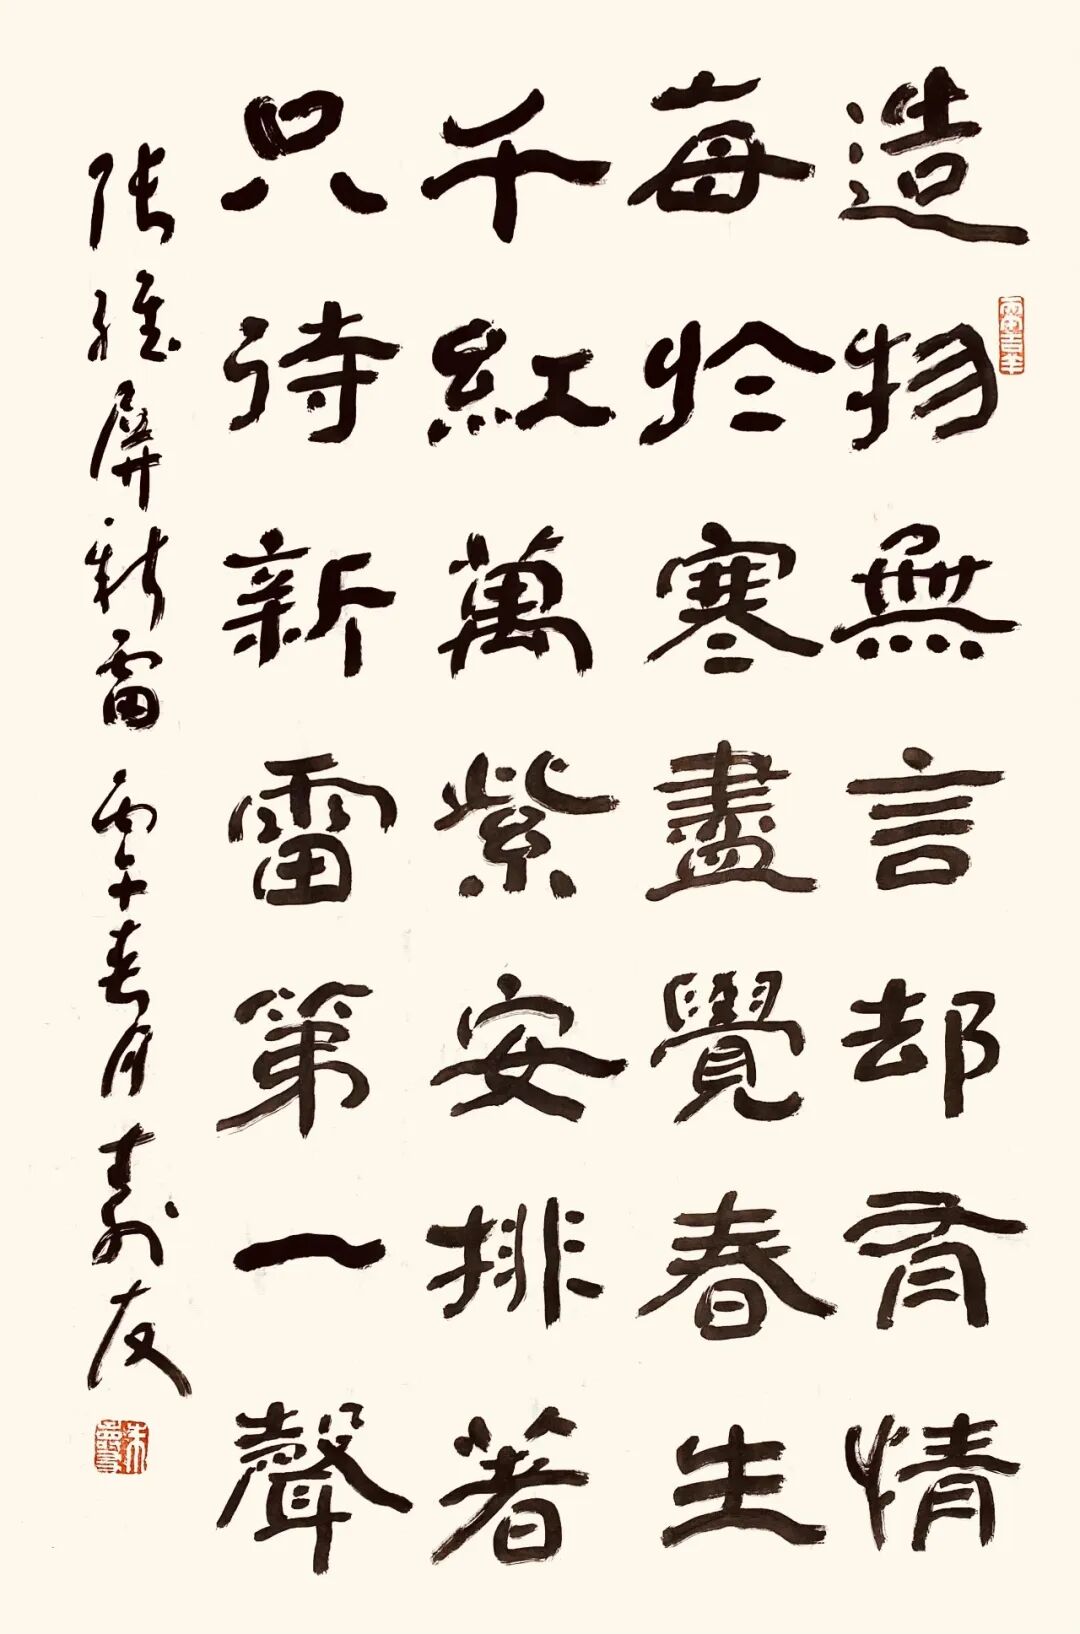 造物無言却有情
每於寒盡覺春生
千紅萬紫安排著
只待新雷第一聲
張維屏新雷 丙午春月 壽友
丙午吉羊
朱壽友